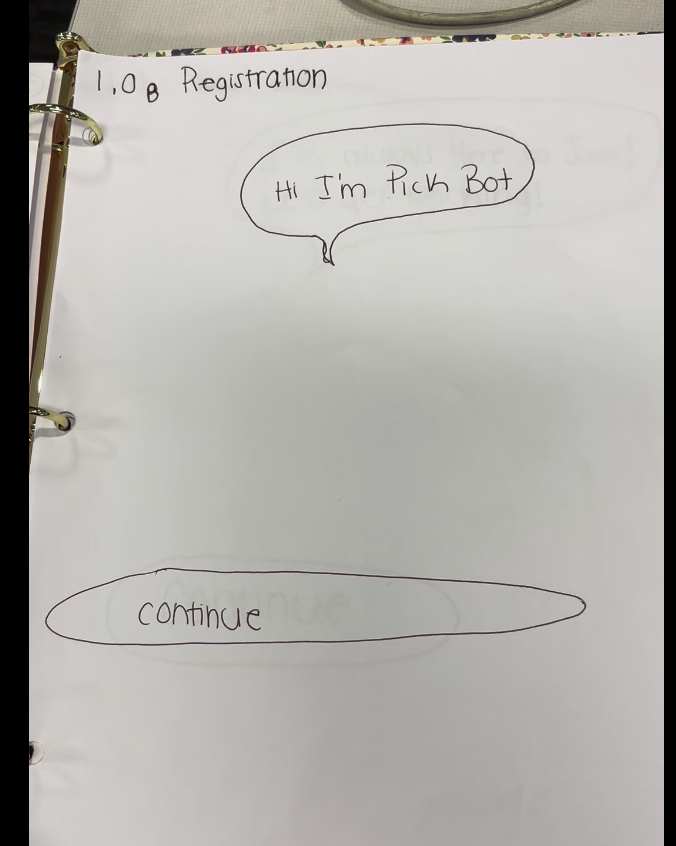 1.0 B Registration
Hi I'm Pick Bot
continue